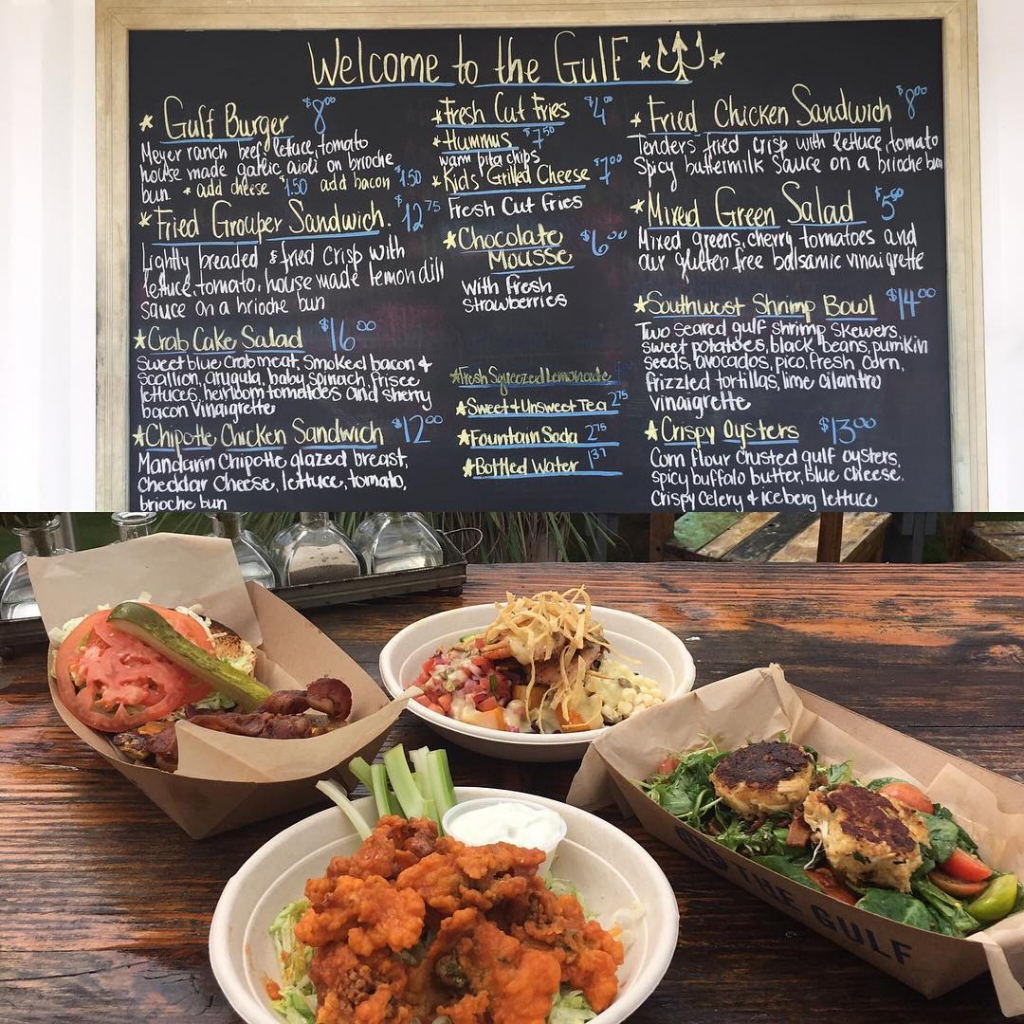 Welcome to the Gulf
* Gulf Burger $8.00
Meyer ranch beef, lettuce, tomato
house made garlic aioli on brioche
bun * add cheese $1.50 add bacon $1.50
* Fried Grouper Sandwich. $12.75
Lightly breaded & fried crisp with
lettuce, tomato, house made lemon dill
sauce on a brioche bun
* Crab Cake Salad $16.00
Sweet blue crab meat, smoked bacon &
scallion, arugula, baby spinach, frisee
lettuces, heirloom tomatoes and sherry
bacon vinaigrette
* Chipotle Chicken Sandwich $12.00
Mandarin Chipotle glazed breast,
Cheddar Cheese, lettuce, tomato,
brioche bun
* Fresh Cut Fries $4.00
* Hummus $7.50
warm pita chips
* Kids Grilled Cheese $7.00
Fresh Cut Fries
* Chocolate Mousse $6.00
with fresh
strawberries
* Fresh Squeezed Lemonade
* Sweet & Unsweet Tea 2.75
* Fountain Soda 2.75
* Bottled Water 1.37
* Fried Chicken Sandwich $8.00
Tenders fried crisp with lettuce, tomato
Spicy buttermilk sauce on a brioche bun
* Mixed Green Salad $5.50
Mixed greens, cherry tomatoes and
our gluten free balsamic vinaigrette
* Southwest Shrimp Bowl $14.00
Two seared gulf shrimp skewers,
sweet potatoes, black beans, pumkin
seeds, avocados, pico, fresh corn,
frizzled tortillas, lime cilantro
vinaigrette
* Crispy Oysters $13.00
Corn flour crusted gulf oysters,
spicy buffalo butter, blue cheese.
Crispy celery & iceberg lettuce
THE GULF